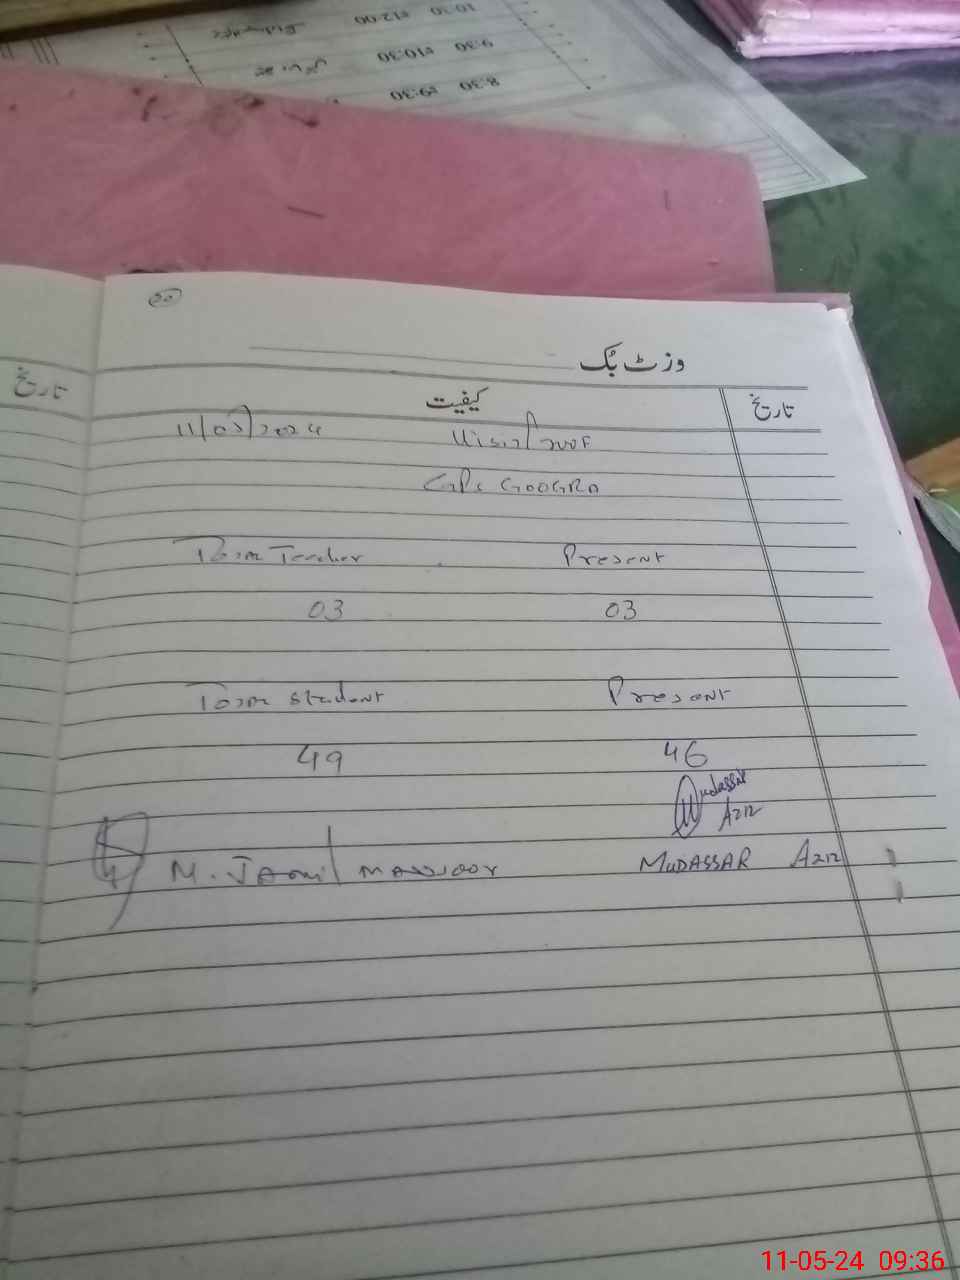 10:30 to 12:00
9:30 to 10:30
8:30 to 9:30
50
وزٹ بُک
تاریخ
کیفیت
تاریخ
11/05/2024
GPS GOOGRA
Teacher Present
03 03
Student Present
49 46
Mudassir
Aziz
M. JAmil MANZOOR MUDASSAR AZIZ
11-05-24 09:36